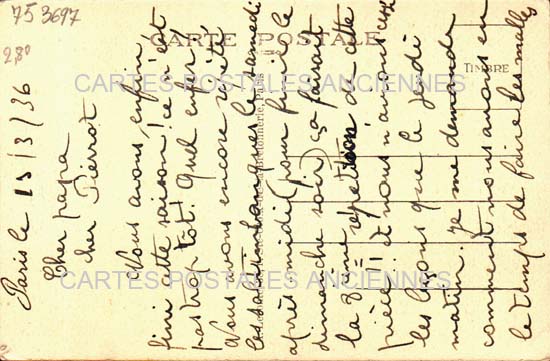 75 3697
2,80
CARTE POSTALE
TIMBRE
CARTES POSTALES ANCIENNES
CARTES POSTALES ANCIENNES
Paris le 15/3/36
Cher papa
cher Pierrot
Nous avons enfin
fini cette saison! ce n'est
pas trop tôt! Quel enfer
Nous avons encore répété
les saltimbanques le samedi
après midi (pour finir le
dimanche soir) ça faisait
la 8eme répétition de cette
pièce!! et nous n'avions eu
les leçons que le jeudi
matin. Je me demande
comment nous avons eu
le temps de faire les malles